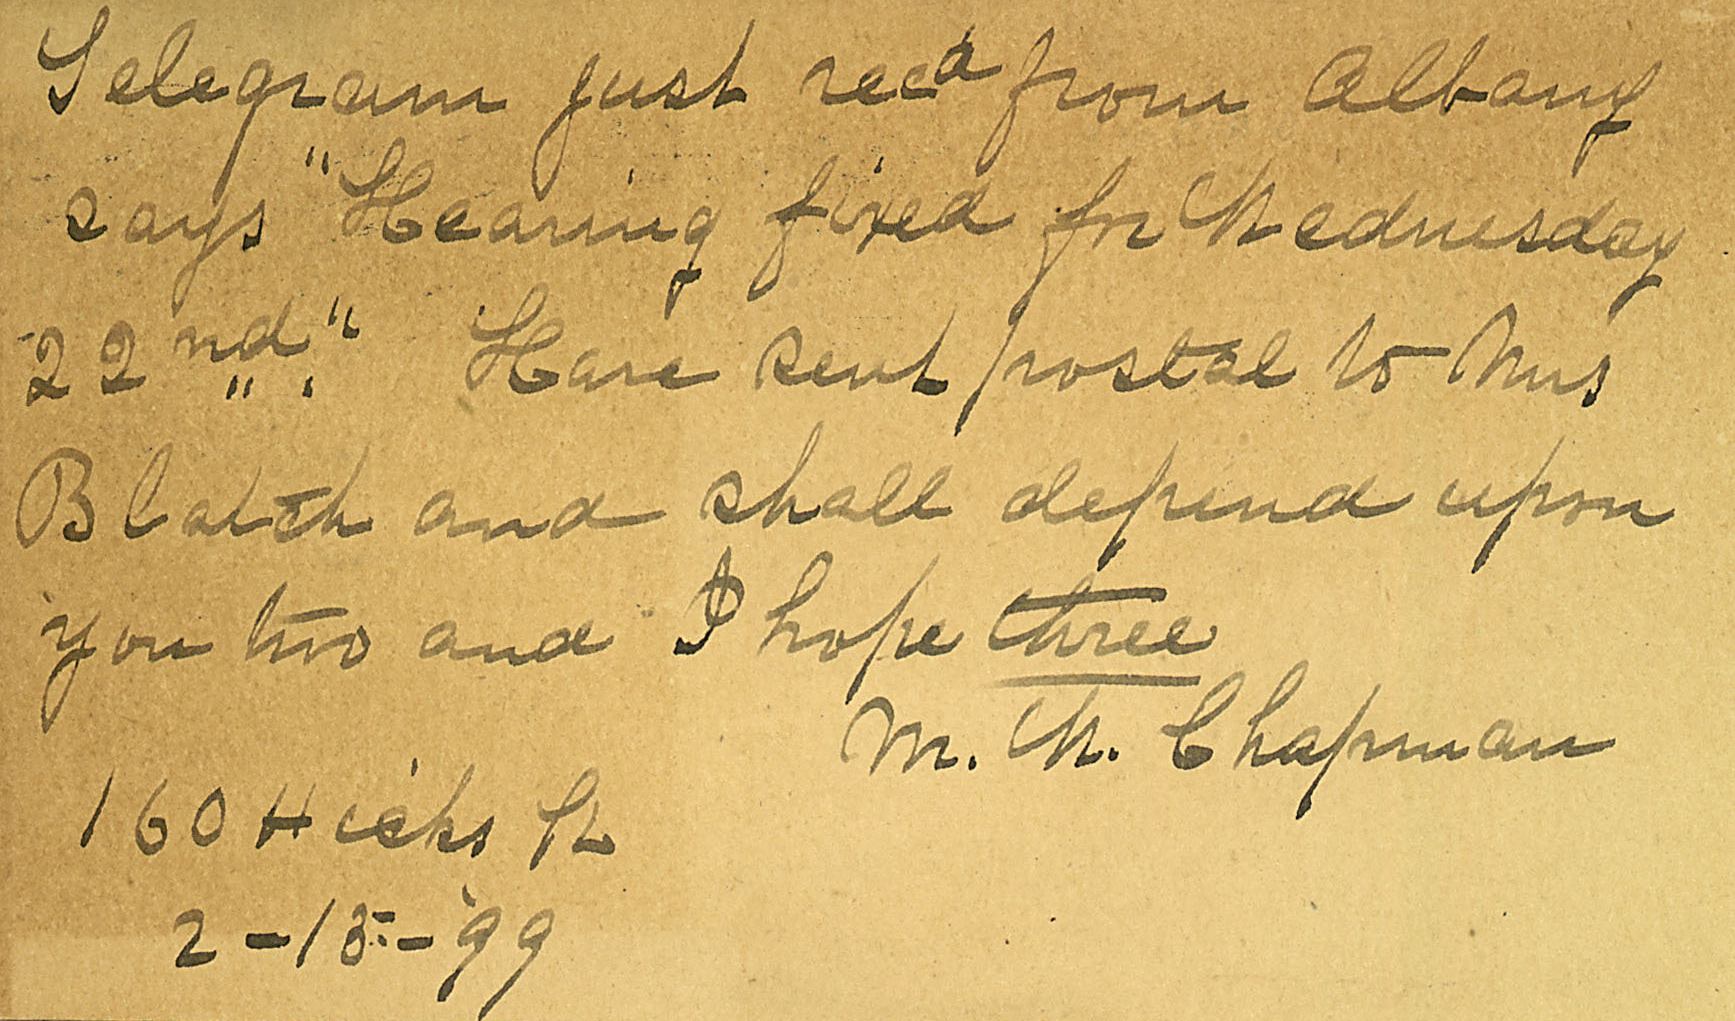 Telegram just recd from Albany
says "Hearing fixed for Wednesday
22nd." Have sent postal to Mrs
Blatch and shall depend upon
you two and I hope three
M. W. Chapman
160 Hicks St
2-15-'99